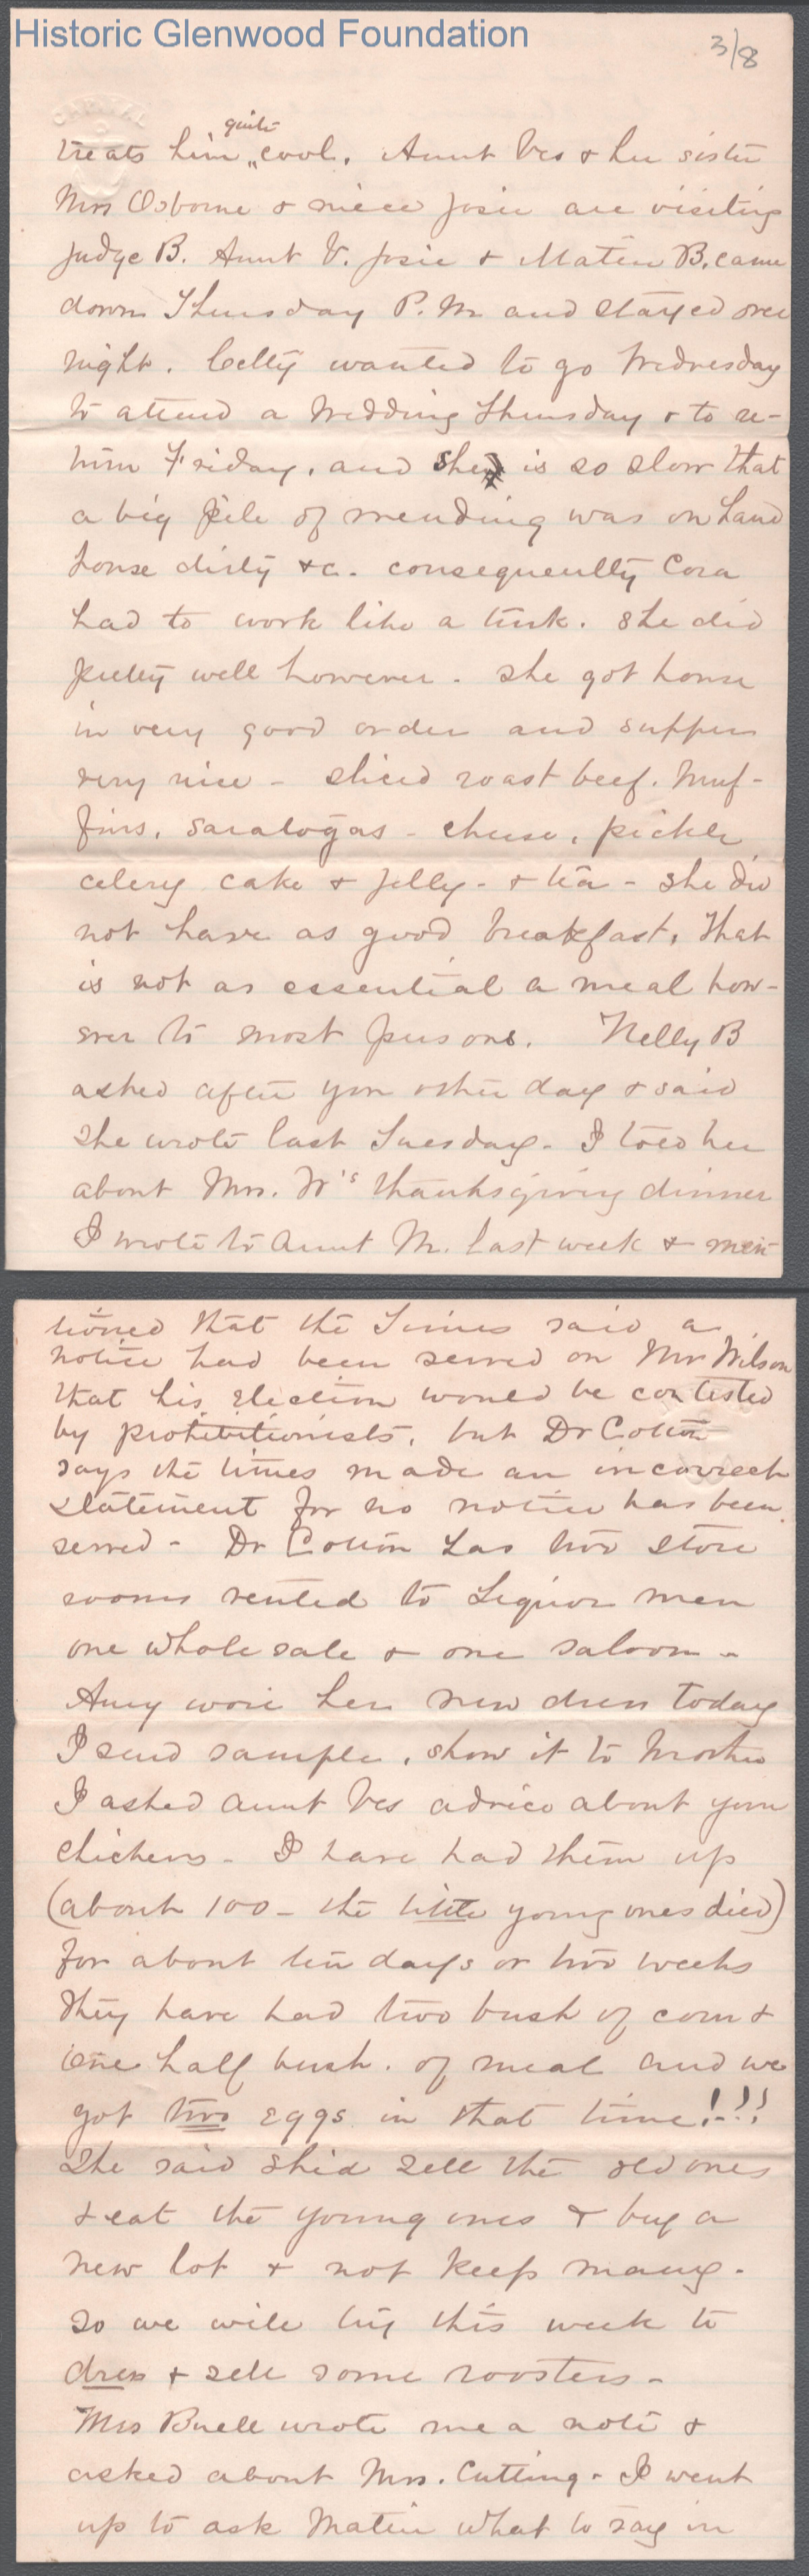 Historic Glenwood Foundation
3/8
quite
treats him „ cool. Aunt Ves & her sister
Mrs Osborne & niece Josie are visiting
Judge B. Aunt V. Josie & Matie B. came
down Thursday P.M. and stayed over
night. Celty wanted to go Wednesday
to attend a Wedding Thursday & to re-
turn Friday, and she is so slow that
a big pile of mending was on hand
house dirty &c. consequently Cora
had to work like a turk. She did
pretty well however. She got house
in very good order and supper
very nice - sliced roast beef. Muf-
fins, saratogas - cheese, pickle,
celery cake & jelly - & tea - she did
not have as good breakfast, that
is not as essential a meal how-
ever to most persons. Nelly B
asked after you other day & said
she wrote last Tuesday - I told her
about Mrs. W's thanksgiving dinner
I wrote to Aunt M. last week & men
tioned that the Times said a
notice had been served on Mr Wilson
that his election would be contested
by prohibitionists, but Dr Colton
says the times made an incorrect
statement for no notice has been
served - Dr Colton has two store
rooms rented to Liquor men
one wholesale & one saloon -
Amy wore her new dress today
I send sample, show it to Mother
I asked Aunt Ves advice about your
chickens - I have had them up
(about 100 - the little young ones died)
for about ten days or two weeks
they have had two bush of corn &
one half bush. of meal and we
got two eggs in that time!!!
She said she'd sell the old ones
& eat the young ones & buy a
new lot & not keep many -
so we will try this week to
dress & sell some roosters -
Mrs Buell wrote me a note &
asked about Mrs. Cutting - I went
up to ask Matie what to say in